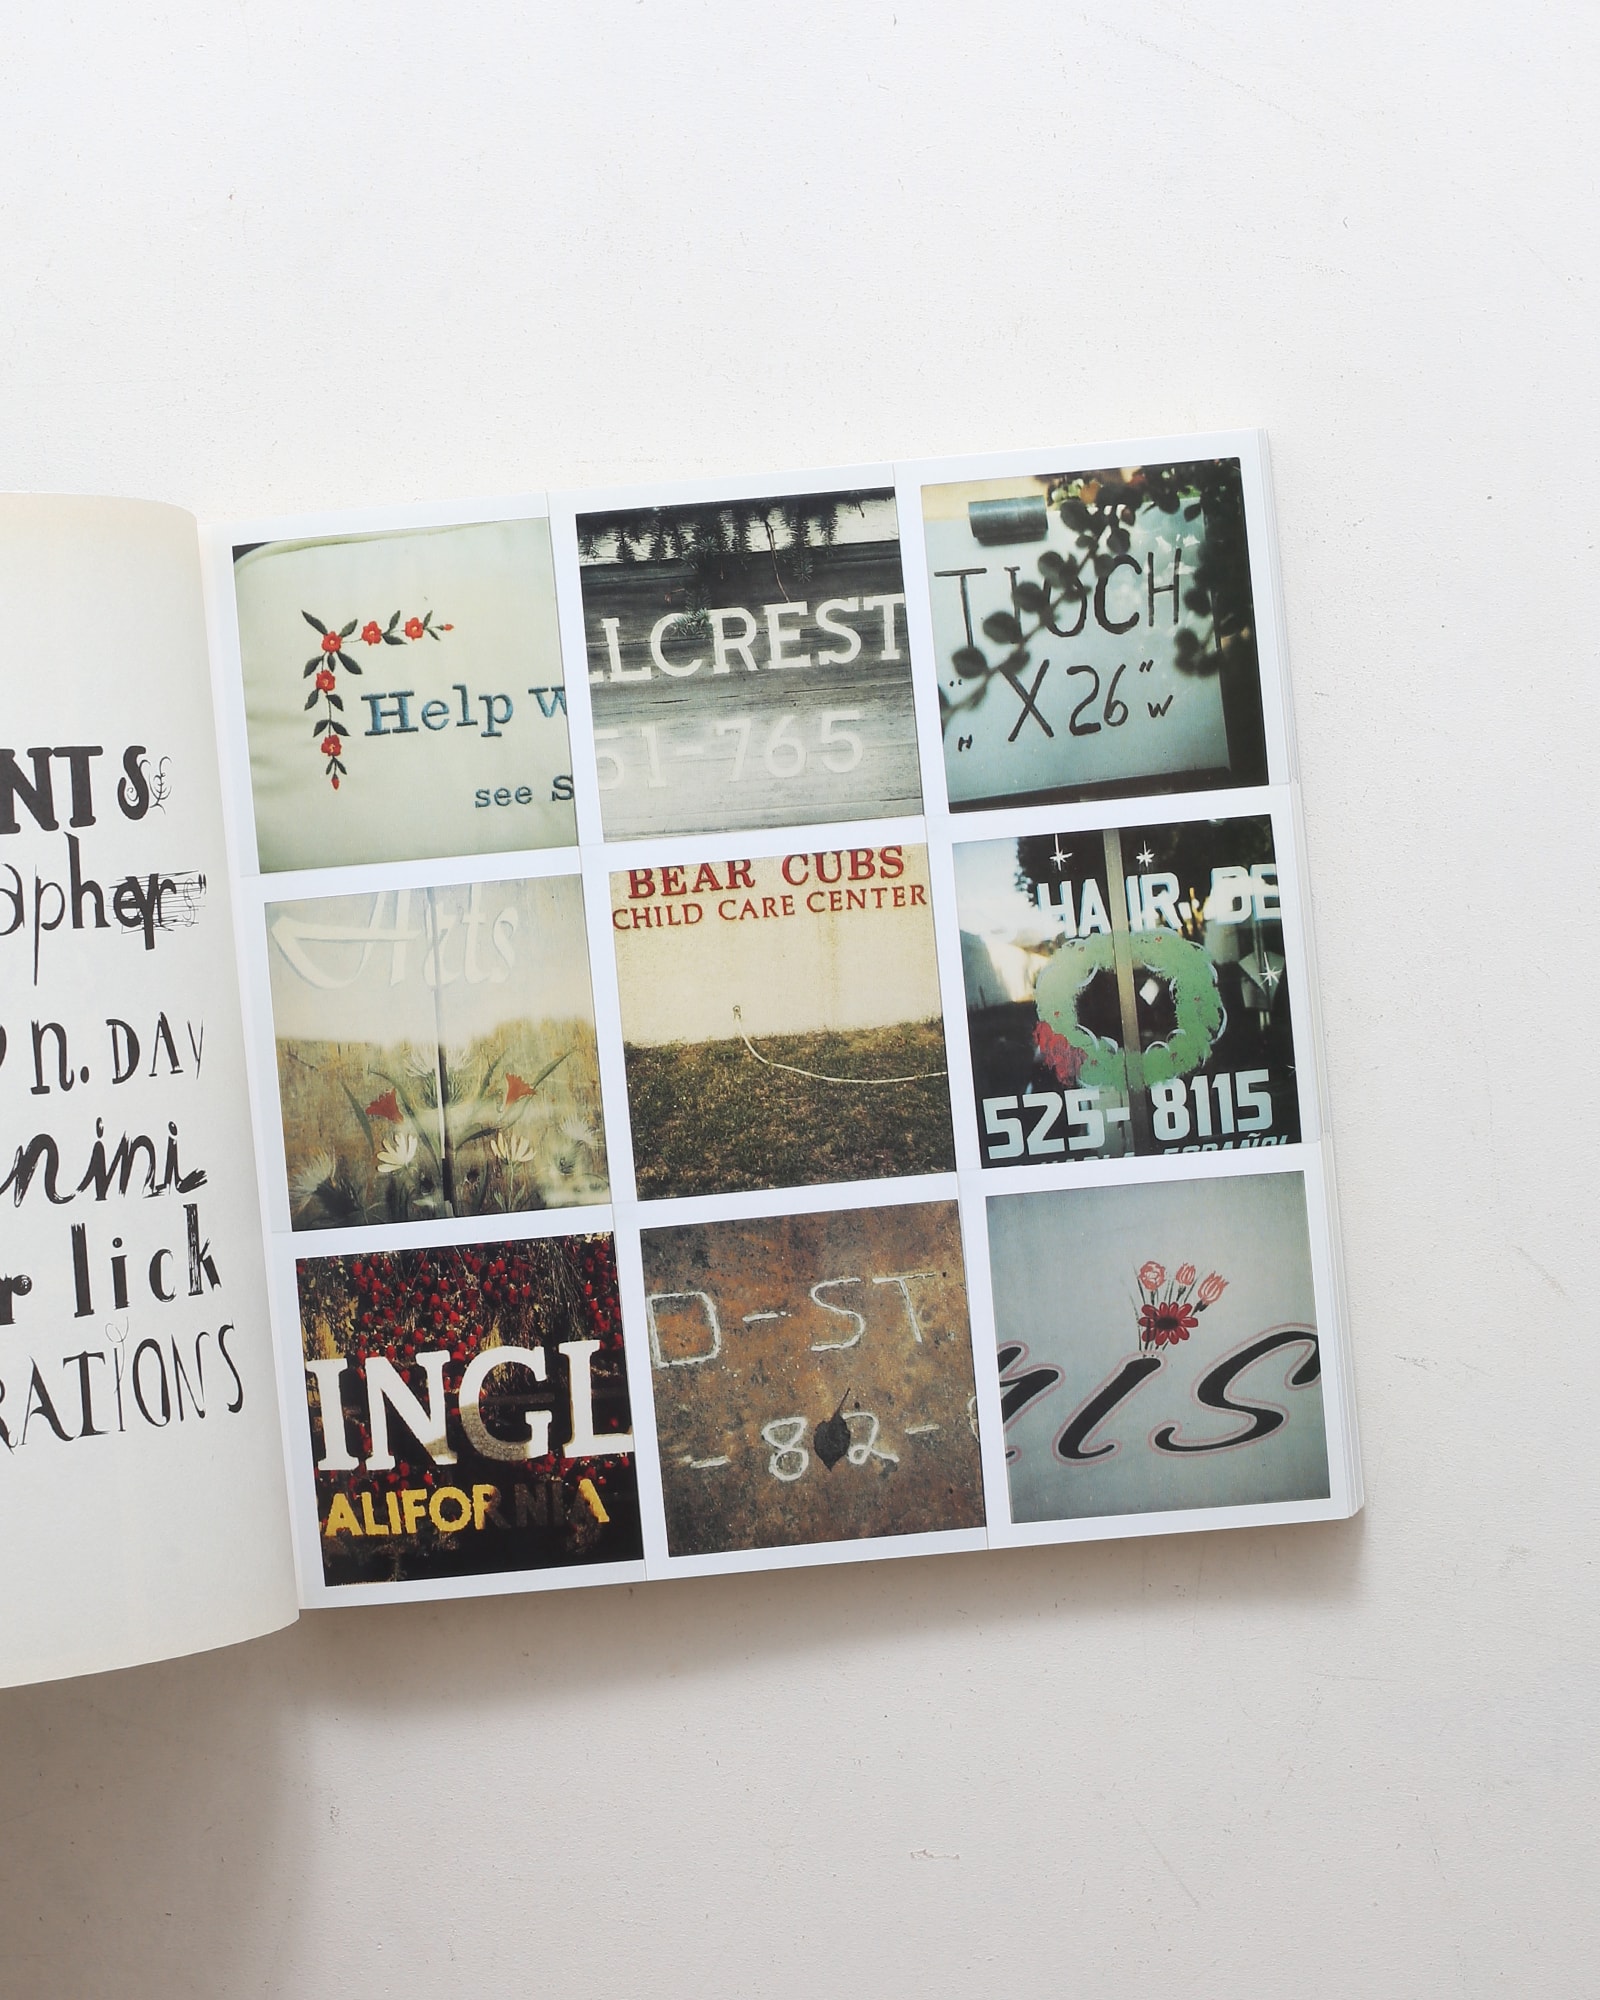 NTS
aphers"
n. DAY
nini
r lick
RATIONS
Help w
see S
LLCREST
51-765
T IOCH
"H X 26"W
Arts
BEAR CUBS
CHILD CARE CENTER
HAIR. DE
525-8115
HABLA ESPAÑOL
INGL
ALIFORNIA
D-ST
-82-
nis